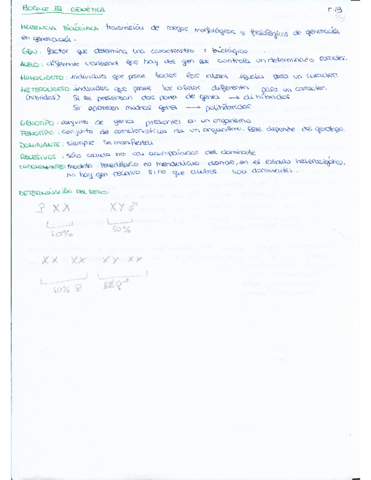 BLOQUE III GENÉTICA T-13
HERENCIA BIOLÓGICA: transmisión de rasgos morfológicos y fisiológicos de generación
en generación.
GEN: factor que determina una característica biológica
ALELO: diferente variant que hay del gen que controla un determinado carácter.
HOMOCIGOTO: individuo que posee los alelos iguales para un carácter.
HETEROCIGOTO: individuo que posee los alelos diferentes para un caracter.
(híbridos) Si se presentan dos pares de genes → dihíbridos
Si aparecen muchos genes → polihíbridos
GENOTIPO: conjunto de genes presentes en un organismo
FENOTIPO: conjunto de características de un organismo. Este depende del genotipo.
DOMINANTE: siempre se manifiesta.
RECESIVOS: sólo cuando no van acompañados del dominante.
CODOMINANTE: modelo hereditario no mendeliano donde, en el estado heterocigótico,
no hay gen recesivo si no que ambos son dominantes.
DETERMINACIÓN DEL SEXO:
♀ XX XY ♂
50% 50%
XX XX XY XY
50% ♀ 50% ♂